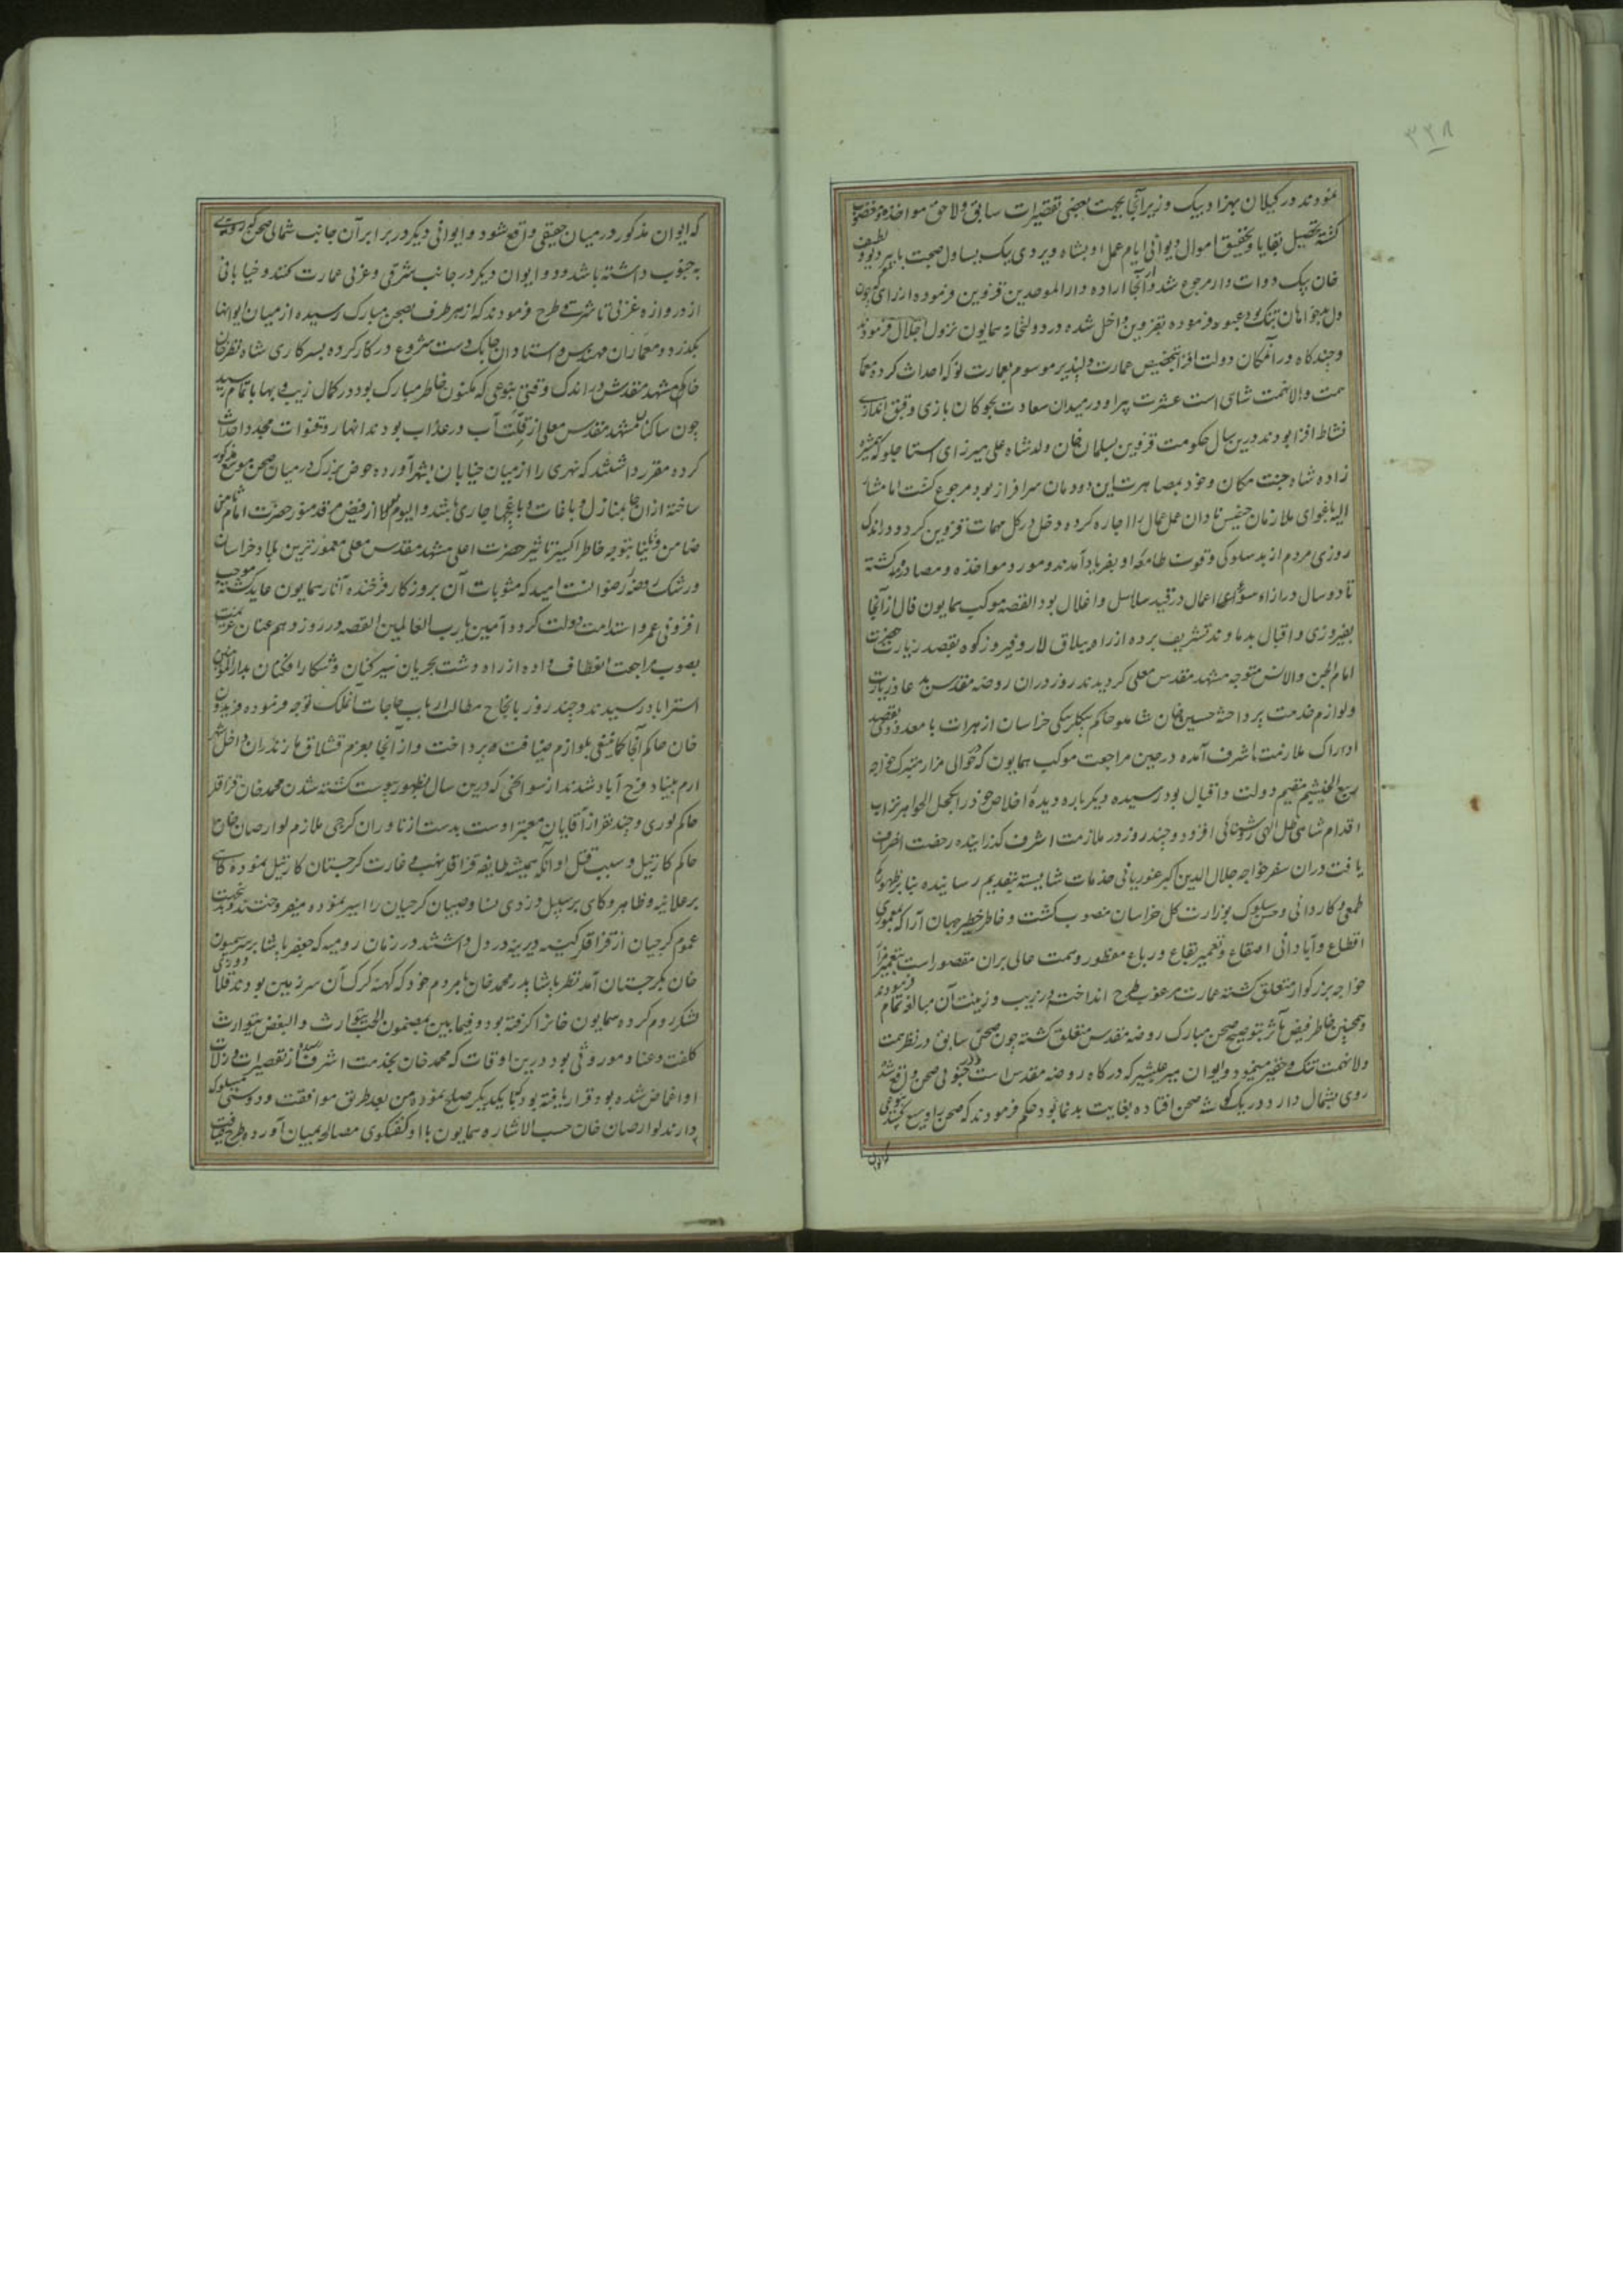 ۳۳۸
نمودند در کیلان بهزاد بیک وزیر آنجا بجهت بعضی تقصیرات سابق و لاحق مواخذ و مغضوب
کشته تحصیل بقایا و تحقیق اموال دیوانی ایام عمل او بشاه ویردی بیک یساول صحبت
خان بیک دوات دار مرجوع شد و از آنجا اراده دارالموحدین قزوین فرموده
بقزوین داخل شده در دولتخانه همایون نزول اجلال فرمودند
و چند کاه در آنمکان دولت افزا بتخصیص عمارت دلپذیر موسوم بعمارت نو که احداث کرده معمار
همت والا نهمت شاهی است عشرت پیرا و در میدان سعادت بچوکان بازی و قبق اندازی
نشاط افزا بودند درین سال حکومت قزوین بسلمان خان ولد شاه علی میرزای استاجلو که همشیره
زاده شاه جنت مکان و خود بمصاهرت این دودمان سرافراز بود مرجوع کشت اما مشار
الیه باغوای ملازمان خسیس نادان عمل عمال را اجاره کرده دخل در کل مهمات قزوین کرد و در اندک
روزی مردم از بد سلوکی و قوت طامعه او بفریاد آمدند و مورد مواخذه و مصادره کشته
تا دو سال در ازاء سوء اعمال در قید سلاسل و اغلال بود القصه موکب همایون فال از آنجا
بفیروزی و اقبال بدماوند تشریف برده از راه ییلاق لار و فیروزکوه بقصد زیارت حضرت
امام الجن والانس متوجه مشهد مقدس معلی کردیدند روز در ان روضه مقدس بدعا و زیارت
و لوازم خدمت پرداخته حسین خان شاملو حاکم بیکلربیکی خراسان از هرات با معدودی بقصد
ادراک ملازمت اشرف آمده در حین مراجعت موکب همایون که در حوالی مزار متبرک خواجه
ربیع الخیثم مقیم دولت و اقبال بود رسیده دیکر باره دیده اخلاص خود را بکحل الجواهر تراب
اقدام شاهی ظل الهی روشنائی افزود و چند روز در ملازمت اشرف کذرانیده رخصت انصراف
یافت در ان سفر خواجه جلال الدین اکبر غوریانی خدمات شایسته بتقدیم رسانیده بنا بر ظهور
طمعی و کاردانی و حسن سلوک بوزارت کل خراسان منصوب کشت و خاطر خطیر جهان آرا که بمعموری
اقطاع و آبادانی اصقاع و تعمیر بقاع و رباع منظور و همت عالی بران مقصور است بتعمیر مزار
خواجه بزرکوار متعلق کشته عمارت مرغوب طرح انداخته در زیب و زینت آن مبالغه تمام فرمودند
و همچنین خاطر فیض مآثر بتوسیع صحن مبارک روضه مقدس متعلق کشته چون صحن سابق در نظر همت
والا نهمت تنک و حقیر مینمود و ایوان میر علیشیر که درکاه روضه مقدس است در جنوبی صحن واقع شد
روی بشمال دارد در یک کوشه صحن افتاده بغایت بدنما بود حکم فرمودند که صحن را وسیع کنند بنوعی
که ایوان
که ایوان مذکور در میان حقیقی واقع شود و ایوانی دیکر در برابر آن جانب شمالی صحن که روی
به جنوب داشته باشد و دو ایوان دیکر در جانب شرقی و غربی عمارت کنند و خیابانی
از دروازه غربی تا شرقی طرح فرمودند که از هر طرف بصحن مبارک رسیده از میان ایوانها
بکذرد و معماران و مهندسان و استادان چابک دست شروع در کار کرده بسرکاری شاه نظر خان
حاکم مشهد مقدس در اندک وقتی بنوعی که مکنون خاطر مبارک بود در کمال زیب و بها باتمام رسید
چون ساکنان مشهد مقدس معلی از قلت آب در عذاب بودند انهار و قنوات مجدد احداث
کرده مقرر داشتند که نهری را از میان خیابان بشهر آورده حوض بزرک در میان صحن موسع مذکور
ساخته از آنجا بمنازل و باغات و باغچها جاری باشد و الیوم از فیض مرقد منور حضرت امام ثامن
ضامن و بتوجه خاطر اکسیر تاثیر حضرت اعلی مشهد مقدس معلی معمورترین بلاد خراسان
و رشک روضه رضوانست امید که مثوبات آن بروزکار فرخنده آثار همایون عاید کشته موجب
افزونی عمر و استدامت دولت کردد آمین یا رب العالمین القصه در روز دهم عنان عزیمت
بصوب مراجعت انعطاف داده از راه دشت بجریان سیر کنان و شکار افکنان بدارالمومنین
استراباد رسیدند و چند روز بانجاح مطالب ارباب حاجات آنملک توجه فرموده فریدون
خان حاکم آنجا کماینبغی بلوازم ضیافت پرداخت و از آنجا بعزم قشلاق مازندران داخل شهر
ارم بنیاد فرح آباد شدند از سوانحی که درین سال بظهور پیوست کشته شدن محمد خان قزاقلر
حاکم لوری و چند نفر از آقایان معتبر اوست بدست ازناوران کرجی ملازم لوارصاب خان
حاکم کارتیل و سبب قتل او آنکه همیشه طایفه قزاقلر نهب و غارت کرجستان کارتیل نموده کاهی
بر علانیه و ظاهر و کاهی بر سبیل دزدی نسا و صبیان کرجیان را اسیر نموده میفروختند
عموم کرجیان از قزاقلر کینه دیرینه در دل داشتند در زمان رومیه که جعفر پاشا بر سر سیمون
خان بکرجستان آمد نظر پاشا پدر محمد خان با مردم خود که کهنه کرک آن سرزمین بودند
لشکر روم کرده سیمون خان را کرفته بود و فیما بین بمضمون الحب یتوارث والبغض یتوارث
کلفت و عناد موروثی بود درین اوقات که محمد خان بخدمت اشرف رسید و از تقصیرات و زلات
او اغماض شده بود قرار یافته بود که با یکدیکر صلح نموده من بعد طریق موافقت و دوستی مسلوک
دارند لوارصاب خان حسب الاشاره همایون با او کفتکوی مصالحه بمیان آورده طرح ضیافت